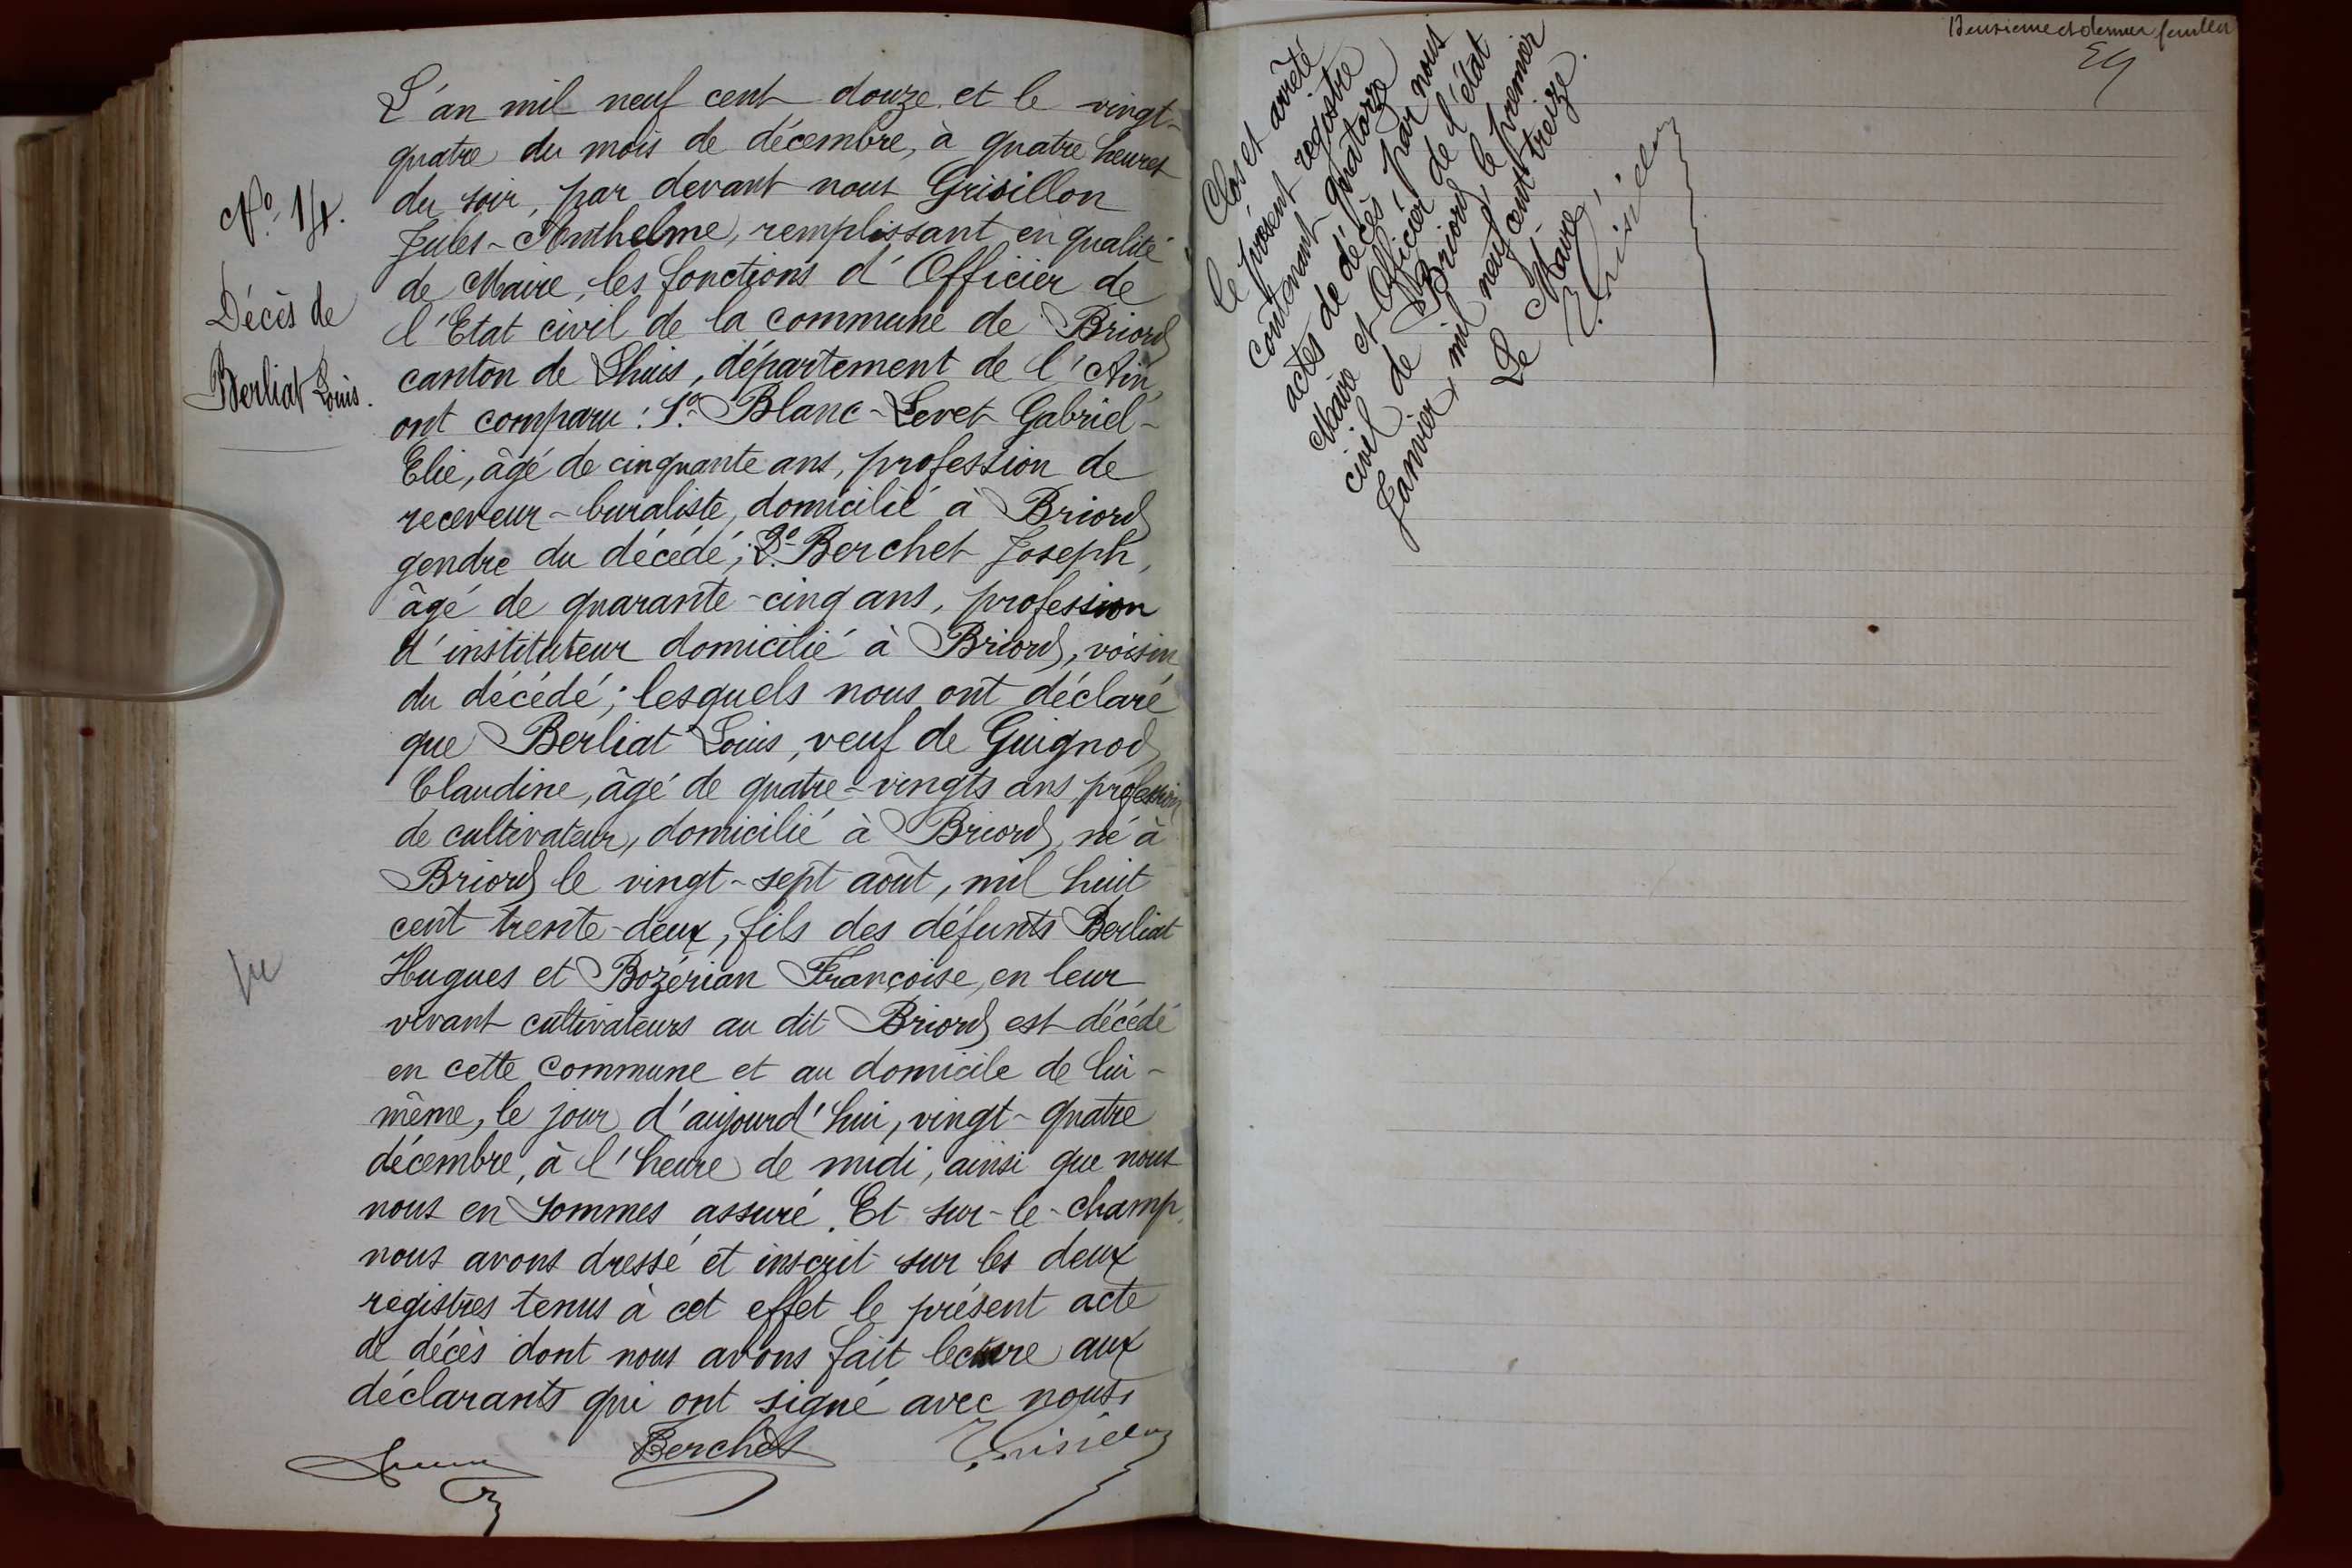 N.º 14.
Décès de
Berliat Louis.
L'an mil neuf cent douze et le vingt-
quatre du mois de décembre, à quatre heures
du soir, par devant nous Grisillon
Jules-Anthelme, remplissant en qualité
de Maire, les fonctions d'Officier de
l'Etat civil de la commune de Briord
canton de Lhuis, département de l'Ain,
ont comparu : 1º Blanc-Levet Gabriel-
Elie, âgé de cinquante ans, profession de
receveur-buraliste, domicilié à Briord
gendre du décédé; 2º Berchet Joseph,
âgé de quarante-cinq ans, profession
d'instituteur domicilié à Briord, voisin
du décédé; lesquels nous ont déclaré
que Berliat Louis, veuf de Guignod
Claudine, âgé de quatre-vingts ans, profession
de cultivateur, domicilié à Briord, né à
Briord le vingt-sept août, mil huit
cent trente-deux, fils des défunts Berliat
Hugues et Bozérian Françoise, en leur
vivant cultivateurs au dit Briord est décédé
en cette commune et au domicile de lui-
même, le jour d'aujourd'hui, vingt-quatre
décembre, à l'heure de midi, ainsi que nous
nous en sommes assuré. Et sur-le-champ,
nous avons dressé et inscrit sur les deux
registres tenus à cet effet le présent acte
de décès dont nous avons fait lecture aux
déclarants qui ont signé avec nous.
Berchet
Grisillon
Deuxième et dernier feuillet
Clos et arrêté
le présent registre
contenant quatorze
actes de décès par nous
Maire et Officier de l'état
civil de Briord le premier
Janvier mil neuf cent treize.
Le Maire,
Grisillon